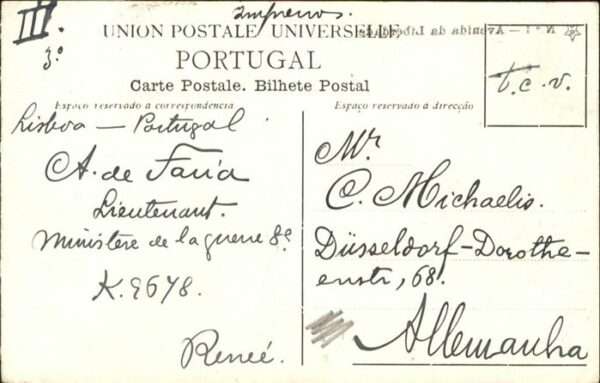 Impressos.
III.
3.º
UNION POSTALE UNIVERSELLE
N.º 1 - Avenida da Liberdade
PORTUGAL
Carte Postale. Bilhete Postal
t.c.v.
Espaço reservado a correspondencia
Espaço reservado a direcção
Lisboa — Portugal
A. de Faria
Lieutenant.
Ministère de la guerre 8e
K. 9678.
Reneé.
Mr.
C. Michaelis.
Düsseldorf-Dorothe-
enstr, 68.
Allemanha